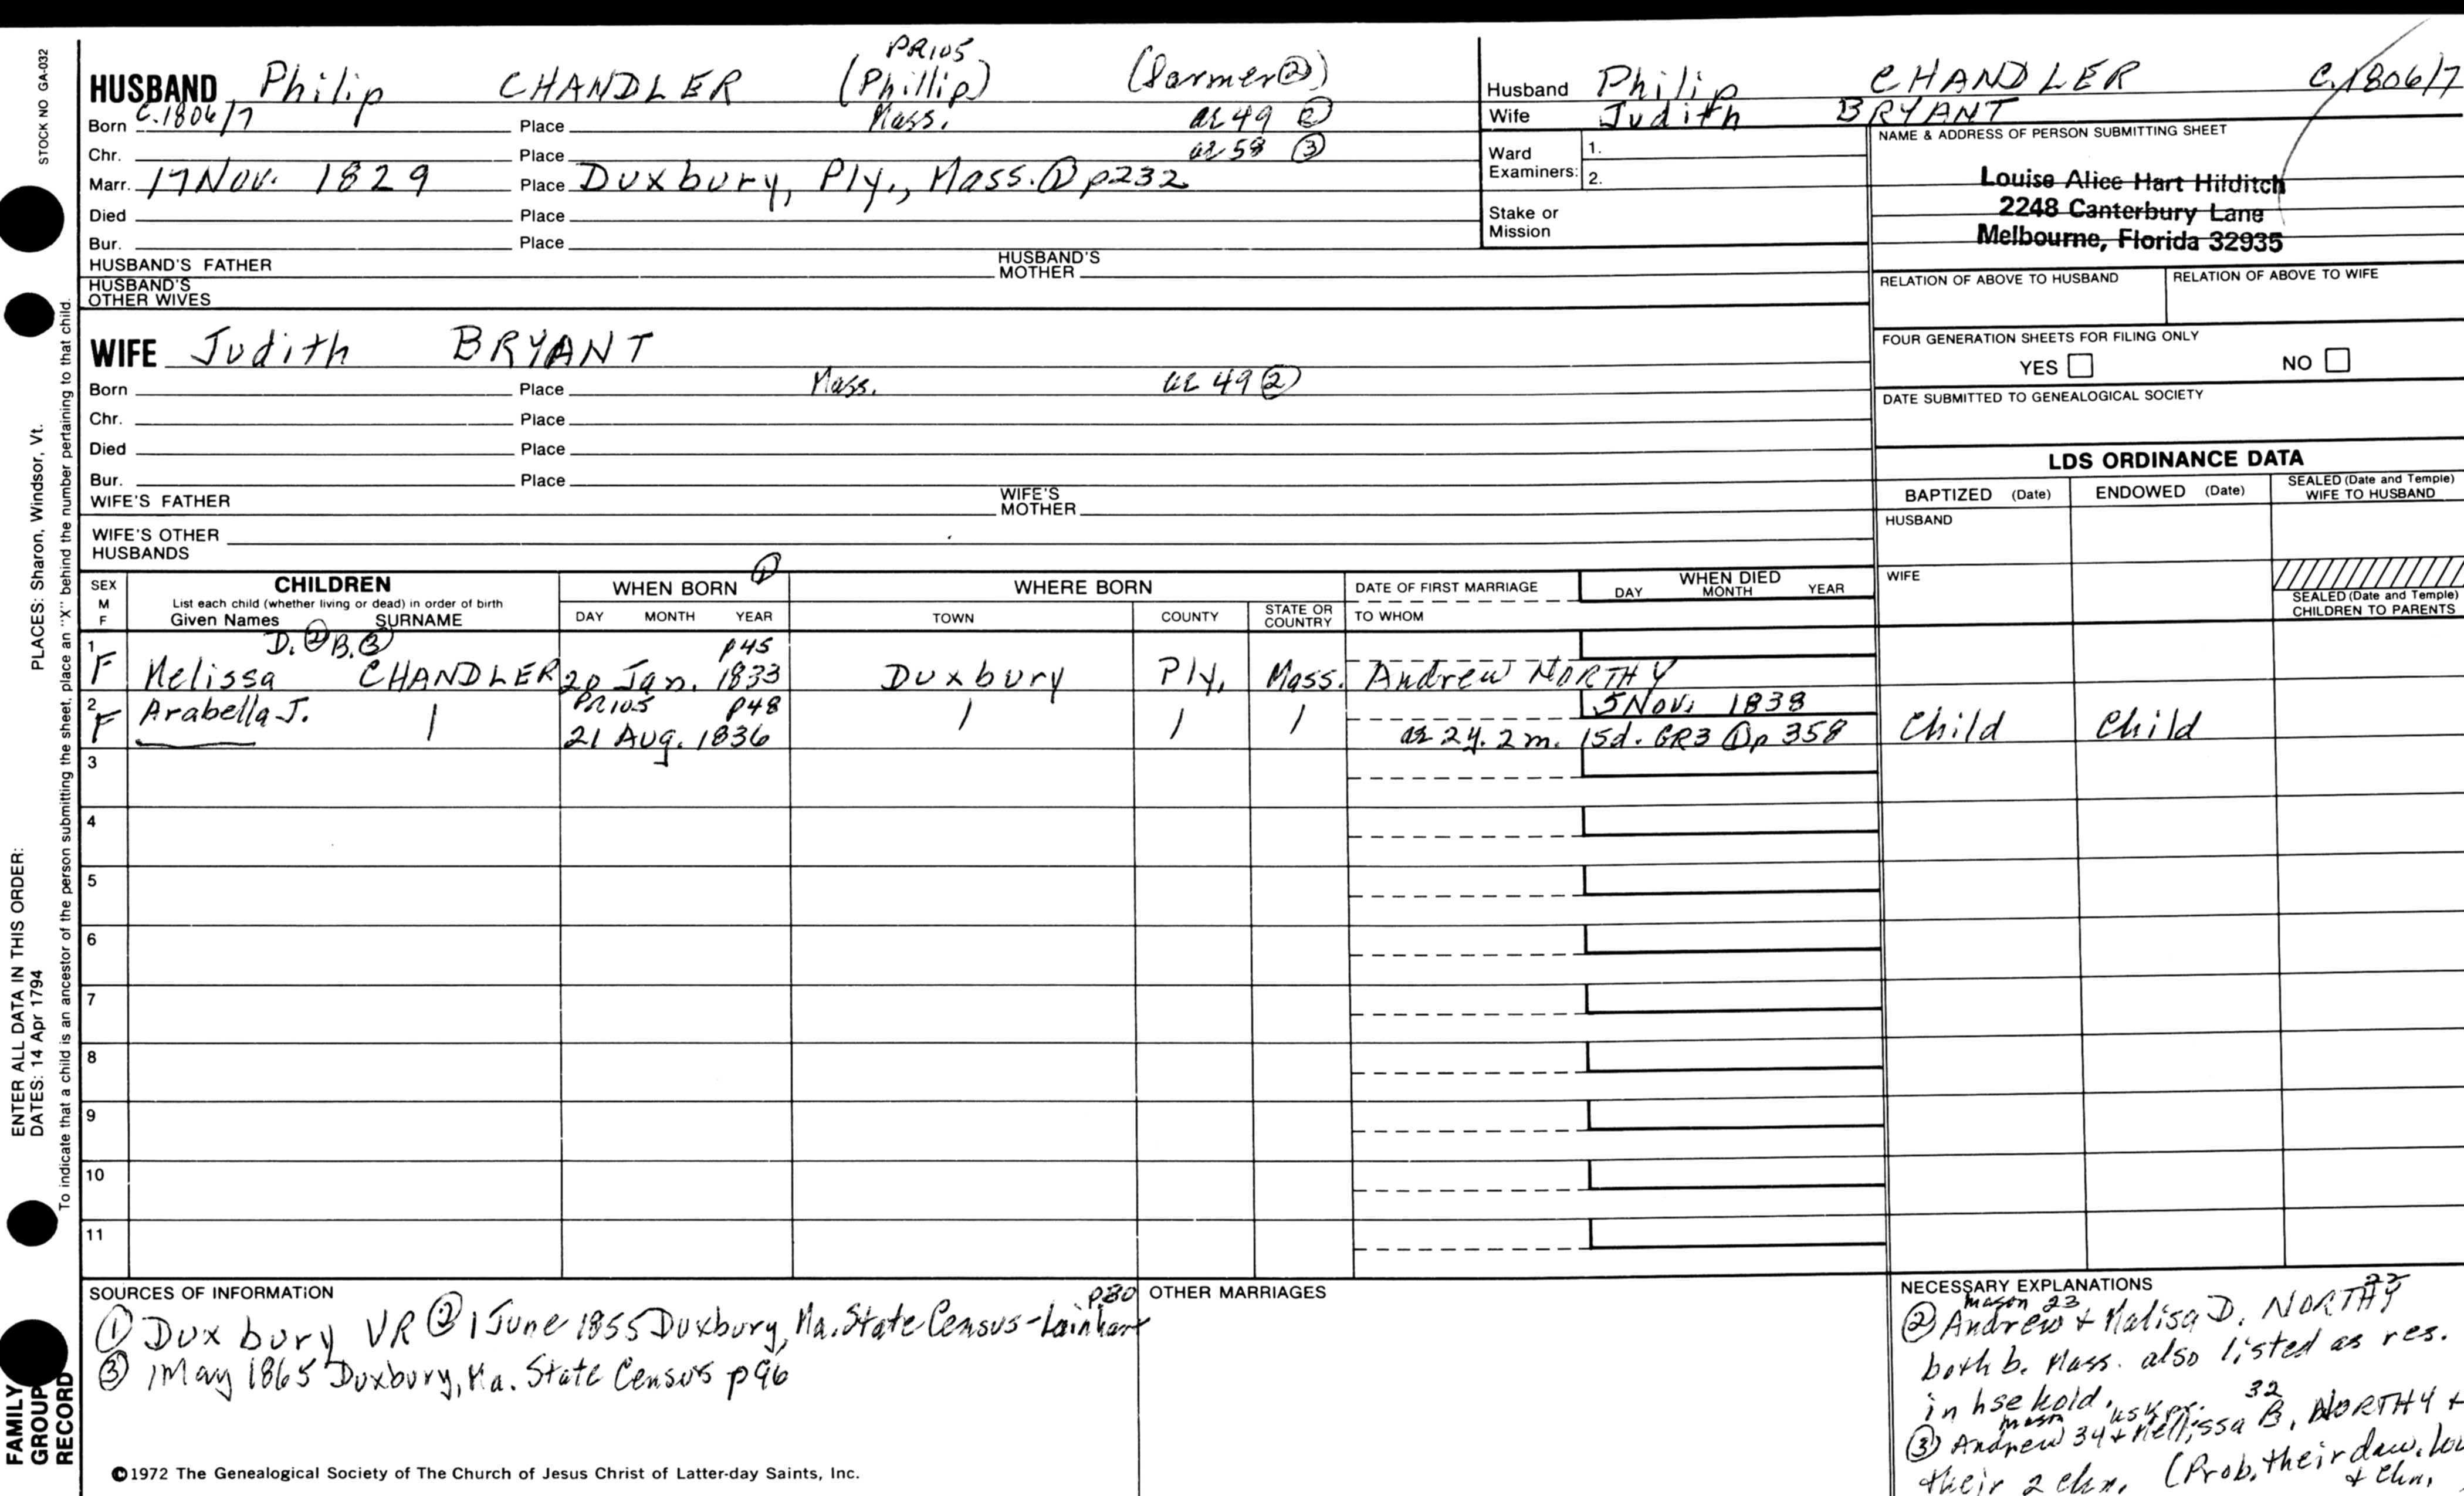 STOCK NO GA-032
PLACES: Sharon, Windsor, Vt.
ENTER ALL DATA IN THIS ORDER:
DATES: 14 Apr 1794
To indicate that a child is an ancestor of the person submitting the sheet, place an "X" behind the number pertaining to that child.
FAMILY
GROUP
RECORD
PR105
HUSBAND Philip CHANDLER (Phillip) (farmer②)
Born C.1806/7 Place Mass. ae 49 ②
Chr. Place ae 58 ③
Marr. 17 Nov. 1829 Place Duxbury, Ply., Mass. ① p232
Died Place
Bur. Place
HUSBAND'S FATHER HUSBAND'S MOTHER
HUSBAND'S OTHER WIVES
WIFE Judith BRYANT
Born Place Mass. ae 49 ②
Chr. Place
Died Place
Bur. Place
WIFE'S FATHER WIFE'S MOTHER
WIFE'S OTHER HUSBANDS
Husband Philip CHANDLER C.1806/7
Wife Judith BRYANT
Ward Examiners: 1.
2.
Stake or Mission
NAME & ADDRESS OF PERSON SUBMITTING SHEET
Louise Alice Hart Hilditch
2248 Canterbury Lane
Melbourne, Florida 32935
RELATION OF ABOVE TO HUSBAND RELATION OF ABOVE TO WIFE
FOUR GENERATION SHEETS FOR FILING ONLY
YES NO
DATE SUBMITTED TO GENEALOGICAL SOCIETY
LDS ORDINANCE DATA
BAPTIZED (Date) ENDOWED (Date) SEALED (Date and Temple) WIFE TO HUSBAND
HUSBAND
WIFE
SEALED (Date and Temple) CHILDREN TO PARENTS
SEX M F
CHILDREN
List each child (whether living or dead) in order of birth
Given Names SURNAME
WHEN BORN ①
DAY MONTH YEAR
WHERE BORN
TOWN COUNTY STATE OR COUNTRY
DATE OF FIRST MARRIAGE
TO WHOM
WHEN DIED
DAY MONTH YEAR
D.② B.③ p45
1 F Melissa CHANDLER 20 Jan. 1833 Duxbury Ply. Mass. Andrew NORTHY
2 F Arabella J. PR105 p48 5 Nov. 1838
21 Aug. 1836 ae 2y. 2m. 15d. GR3 ① p 358 Child Child
3
4
5
6
7
8
9
10
11
SOURCES OF INFORMATION
① Duxbury VR ② 1 June 1855 Duxbury, Ma. State Census-Lainhart p30
③ 1 May 1865 Duxbury, Ma. State Census p96
OTHER MARRIAGES
NECESSARY EXPLANATIONS
mason 23 22
② Andrew + Malisa D. NORTHY
both b. Mass. also listed as res.
in hsehold.
mason 32
③ Andrew 34 + Mellissa B. NORTHY +
their 2 chn. (Prob. their dau.
+ chn.
©1972 The Genealogical Society of The Church of Jesus Christ of Latter-day Saints, Inc.